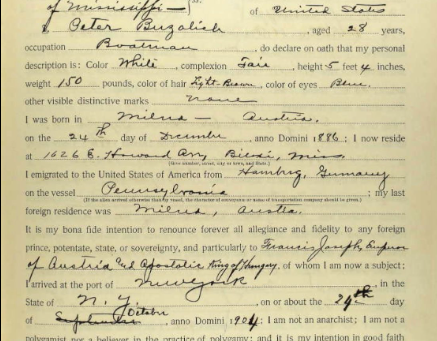 of Mississippi — of United States
I, Peter Buzolich, aged 28 years,
occupation Boatman, do declare on oath that my personal
description is: Color White, complexion Fair, height 5 feet 4 inches,
weight 150 pounds, color of hair Light-Brown, color of eyes Blue.
other visible distinctive marks none
I was born in Milna — Austria.
on the 24th day of December, anno Domini 1886; I now reside
at 1626 E. Howard Ave Biloxi, Miss.
(Give number, street, city or town, and State.)
I emigrated to the United States of America from Hamburg, Germany
on the vessel Pennsylvania; my last
(If the alien arrived otherwise than by vessel, the character of conveyance or name of transportation company should be given.)
foreign residence was Milna, Austia.
It is my bona fide intention to renounce forever all allegiance and fidelity to any foreign
prince, potentate, state, or sovereignty, and particularly to Francis Joseph, Emperor
of Austria and Apostolic King of Hungary, of whom I am now a subject;
I arrived at the port of Newyork, in the
State of N. Y., on or about the 24th day
October
of September, anno Domini 1904; I am not an anarchist; I am not a
polygamist nor a believer in the practice of polygamy; and it is my intention in good faith